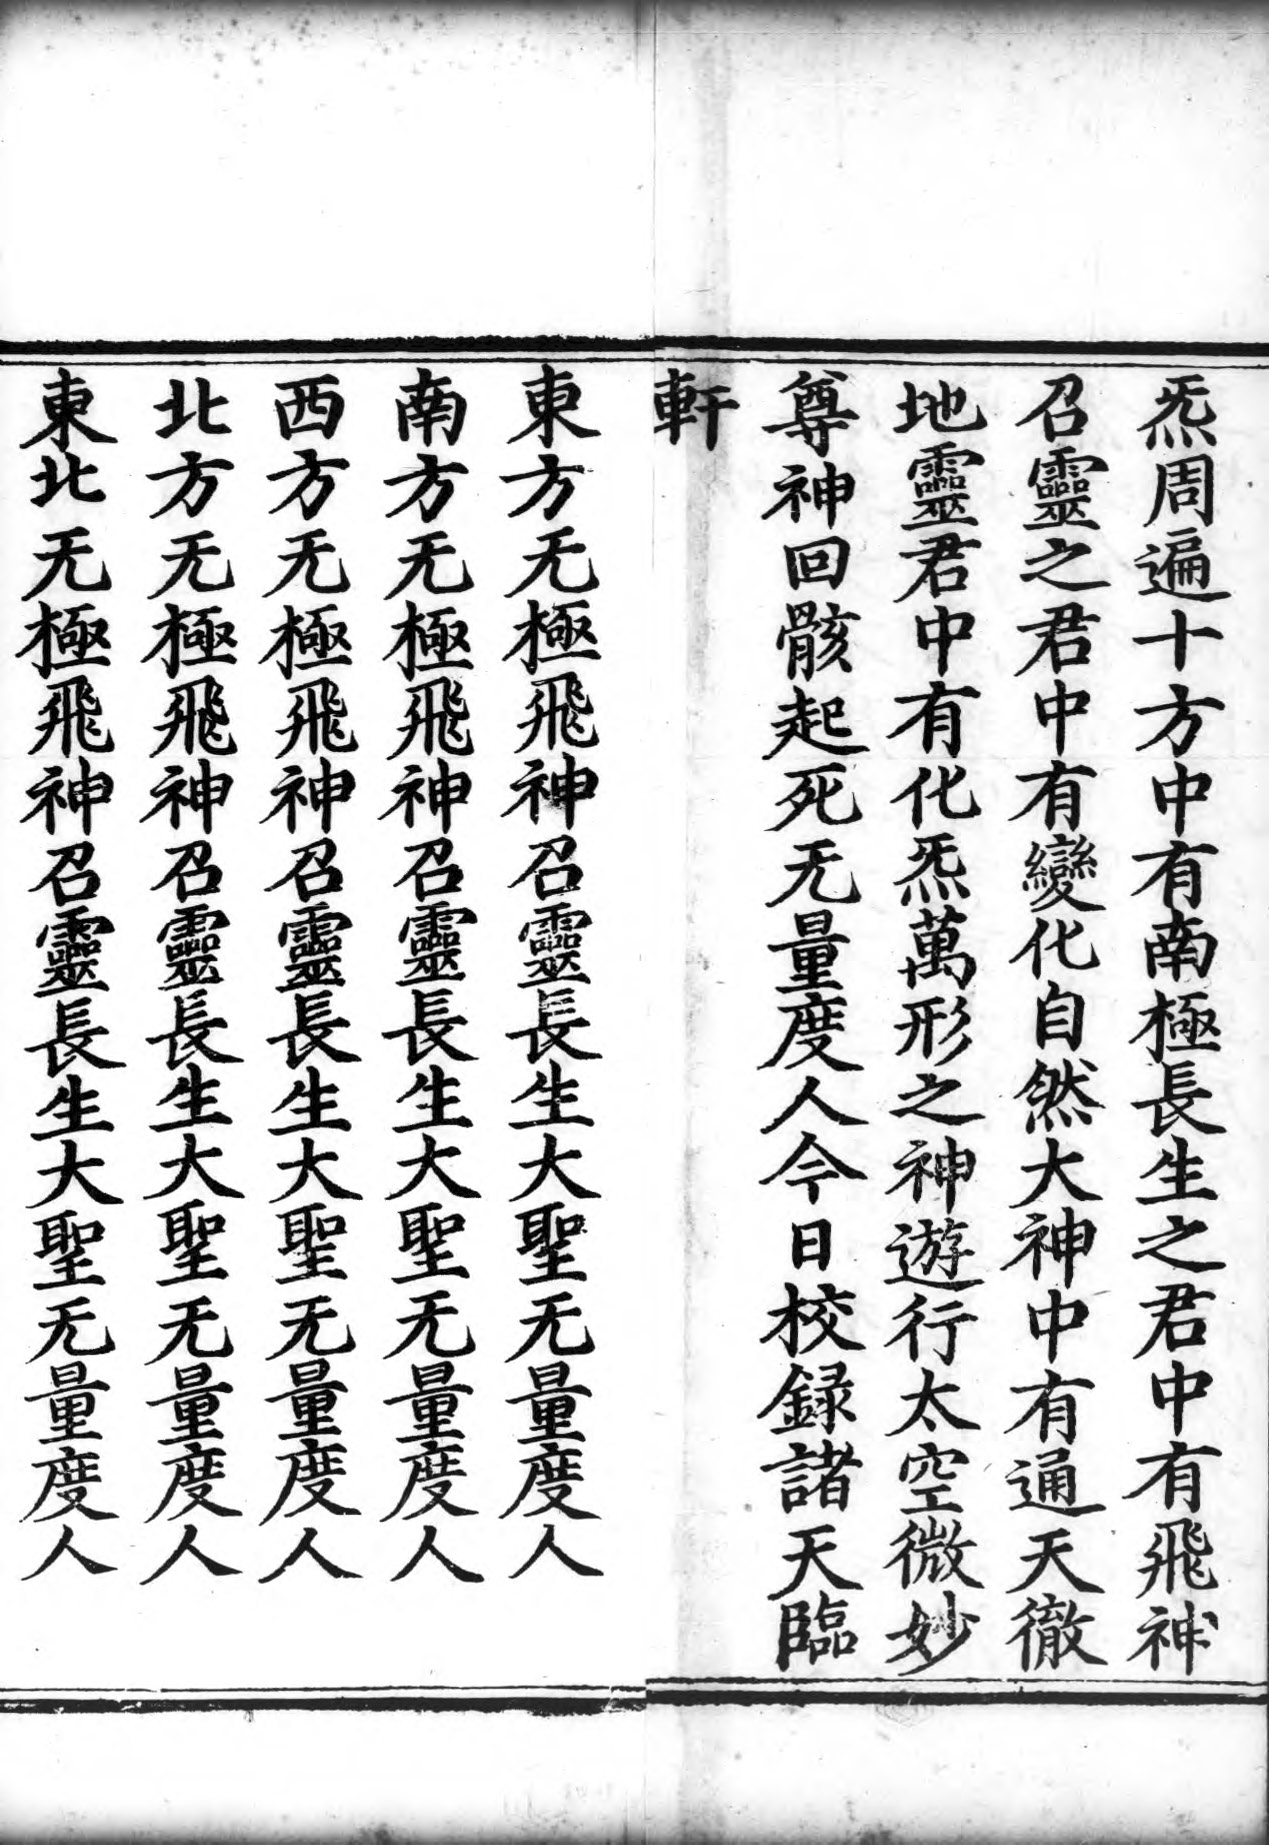 炁周遍十方中有南極長生之君中有飛神
召靈之君中有變化自然大神中有通天徹
地靈君中有化炁萬形之神遊行太空微妙
尊神回骸起死无量度人今日校録諸天臨
軒
東方无極飛神召靈長生大聖无量度人
南方无極飛神召靈長生大聖无量度人
西方无極飛神召靈長生大聖无量度人
北方无極飛神召靈長生大聖无量度人
東北无極飛神召靈長生大聖无量度人